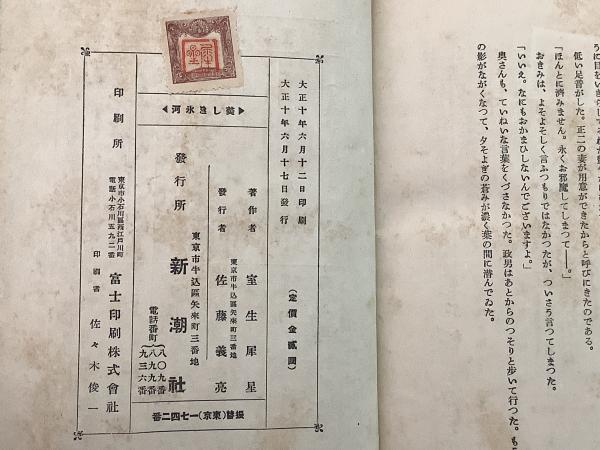 低い足音がした。正二の妻が用意ができたからと呼びにきたのである。
「ほんとに濟みません。永くお邪魔してしまつて――。」
おきみは、よそよそしく言ふつもりではなかつたが、ついさう言つてしまつた。
「いいえ。なにもおかまひしないんでございますよ。」
奧さんも、ていねいな言葉をくづさなかつた。政男はあとからのつそりと歩いて行つた。も
の影がながくなつて、夕そよぎの蒼みが濃く葉の間に潜んでゐた。
大正十年六月十二日印刷
大正十年六月十七日發行
(定價金貳圓)
美しき氷河
著作者 室生犀星
東京市牛込區矢來町三番地
發行者 佐藤義亮
東京市牛込區矢來町三番地
發行所 新潮社
電話番町
一八〇九番
一八九九番
九三六番
振替(東京)一七四二番
東京市小石川區西江戸川町
電話小石川五九二番
印刷所 富士印刷株式會社
印刷者 佐々木俊一